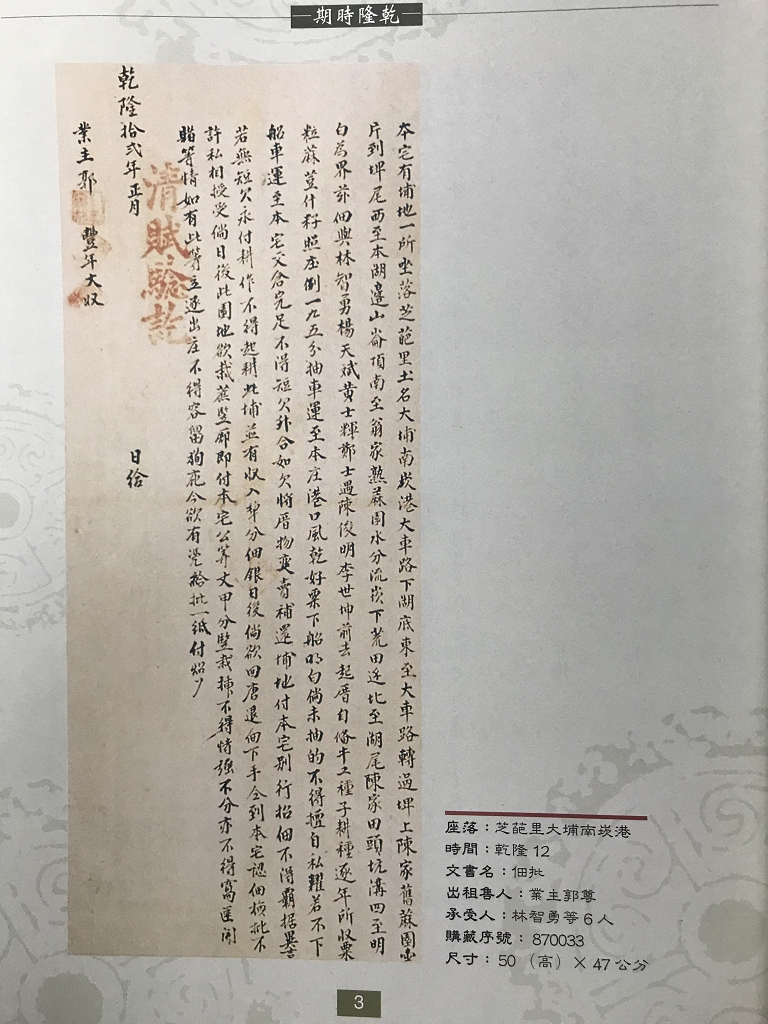 乾隆時期
本宅有埔地一所坐落芝葩里土名大埔南崁港大車路下湖底東至大車路轉過埤上陳家舊蔴園
斤到埤尾西至本湖邊山崙頂南至翁家熟蔴園水分流崁下荒田近北至湖尾陳家田頭坑溝四至明
白為界茲佃與林智勇楊天斌黃士輝鄭士遇陳俊明李世坤前去起厝自俻牛工種子耕種逐年所收粟
粒蔴荳什籽照庄例一九五分抽車運至本庄港口風乾好粟下船明白倘未抽的不得擅自私糶若不下
船車運至本宅交倉完足不得短欠升合如欠將厝物變賣補還埔地付本宅別行招佃不得霸据異言
若無短欠永付耕作不得起耕此埔並有收入犁分佃銀日後倘欲回唐退向下手仝到本宅認佃換批不
許私相授受倘日後此園地欲栽蔗竪廍即付本宅公筭丈甲分竪栽揷不得恃強不分亦不得窩匪開
賭等情如有此等立逐出庄不得容留狥庇今欲有凴給批一紙付炤
乾隆拾弍年正月 日給
清賦驗訖
業主郭 豐年大収
座落：芝葩里大埔南崁港
時間：乾隆12
文書名：佃批
出租售人：業主郭尊
承受人：林智勇等6人
購藏序號：870033
尺寸：50（高）×47公分
3